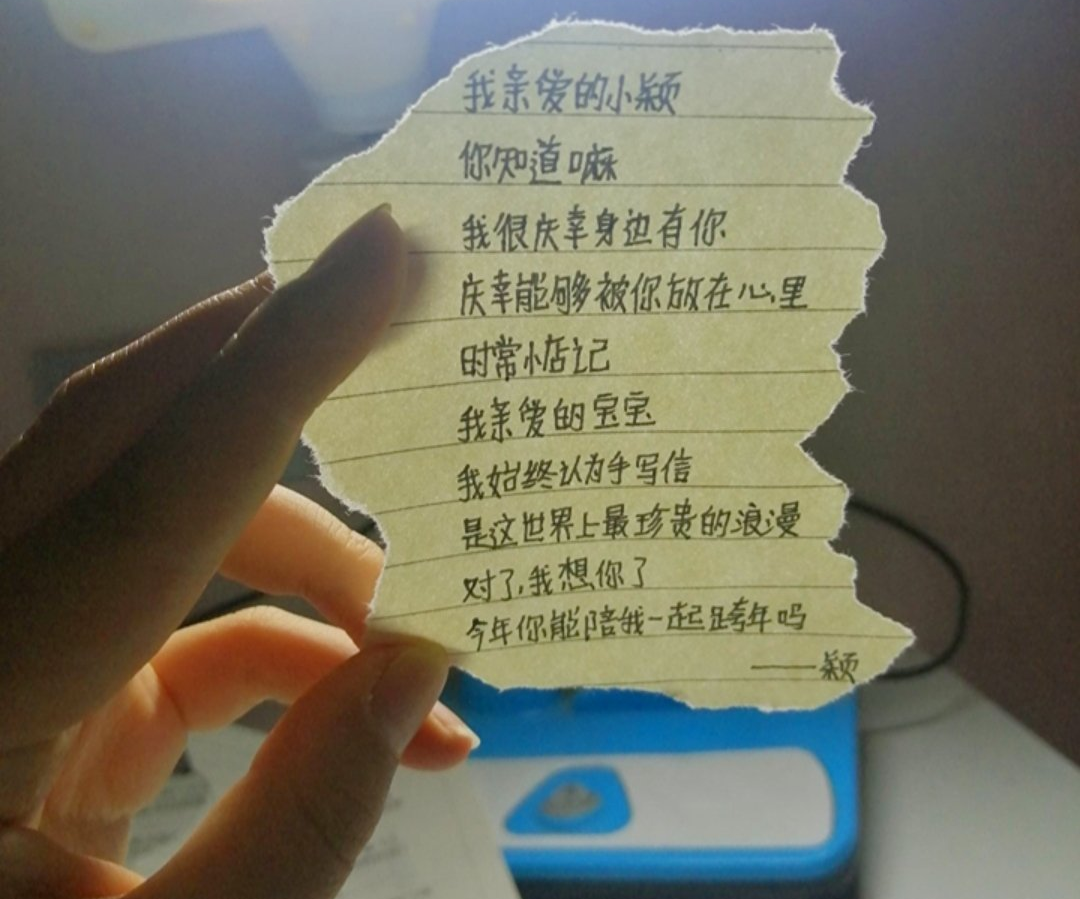 我亲爱的小颖
你知道嘛
我很庆幸身边有你
庆幸能够被你放在心里
时常惦记
我亲爱的宝宝
我始终认为手写信
是这世界上最珍贵的浪漫
对了,我想你了
今年你能陪我一起跨年吗
——颖